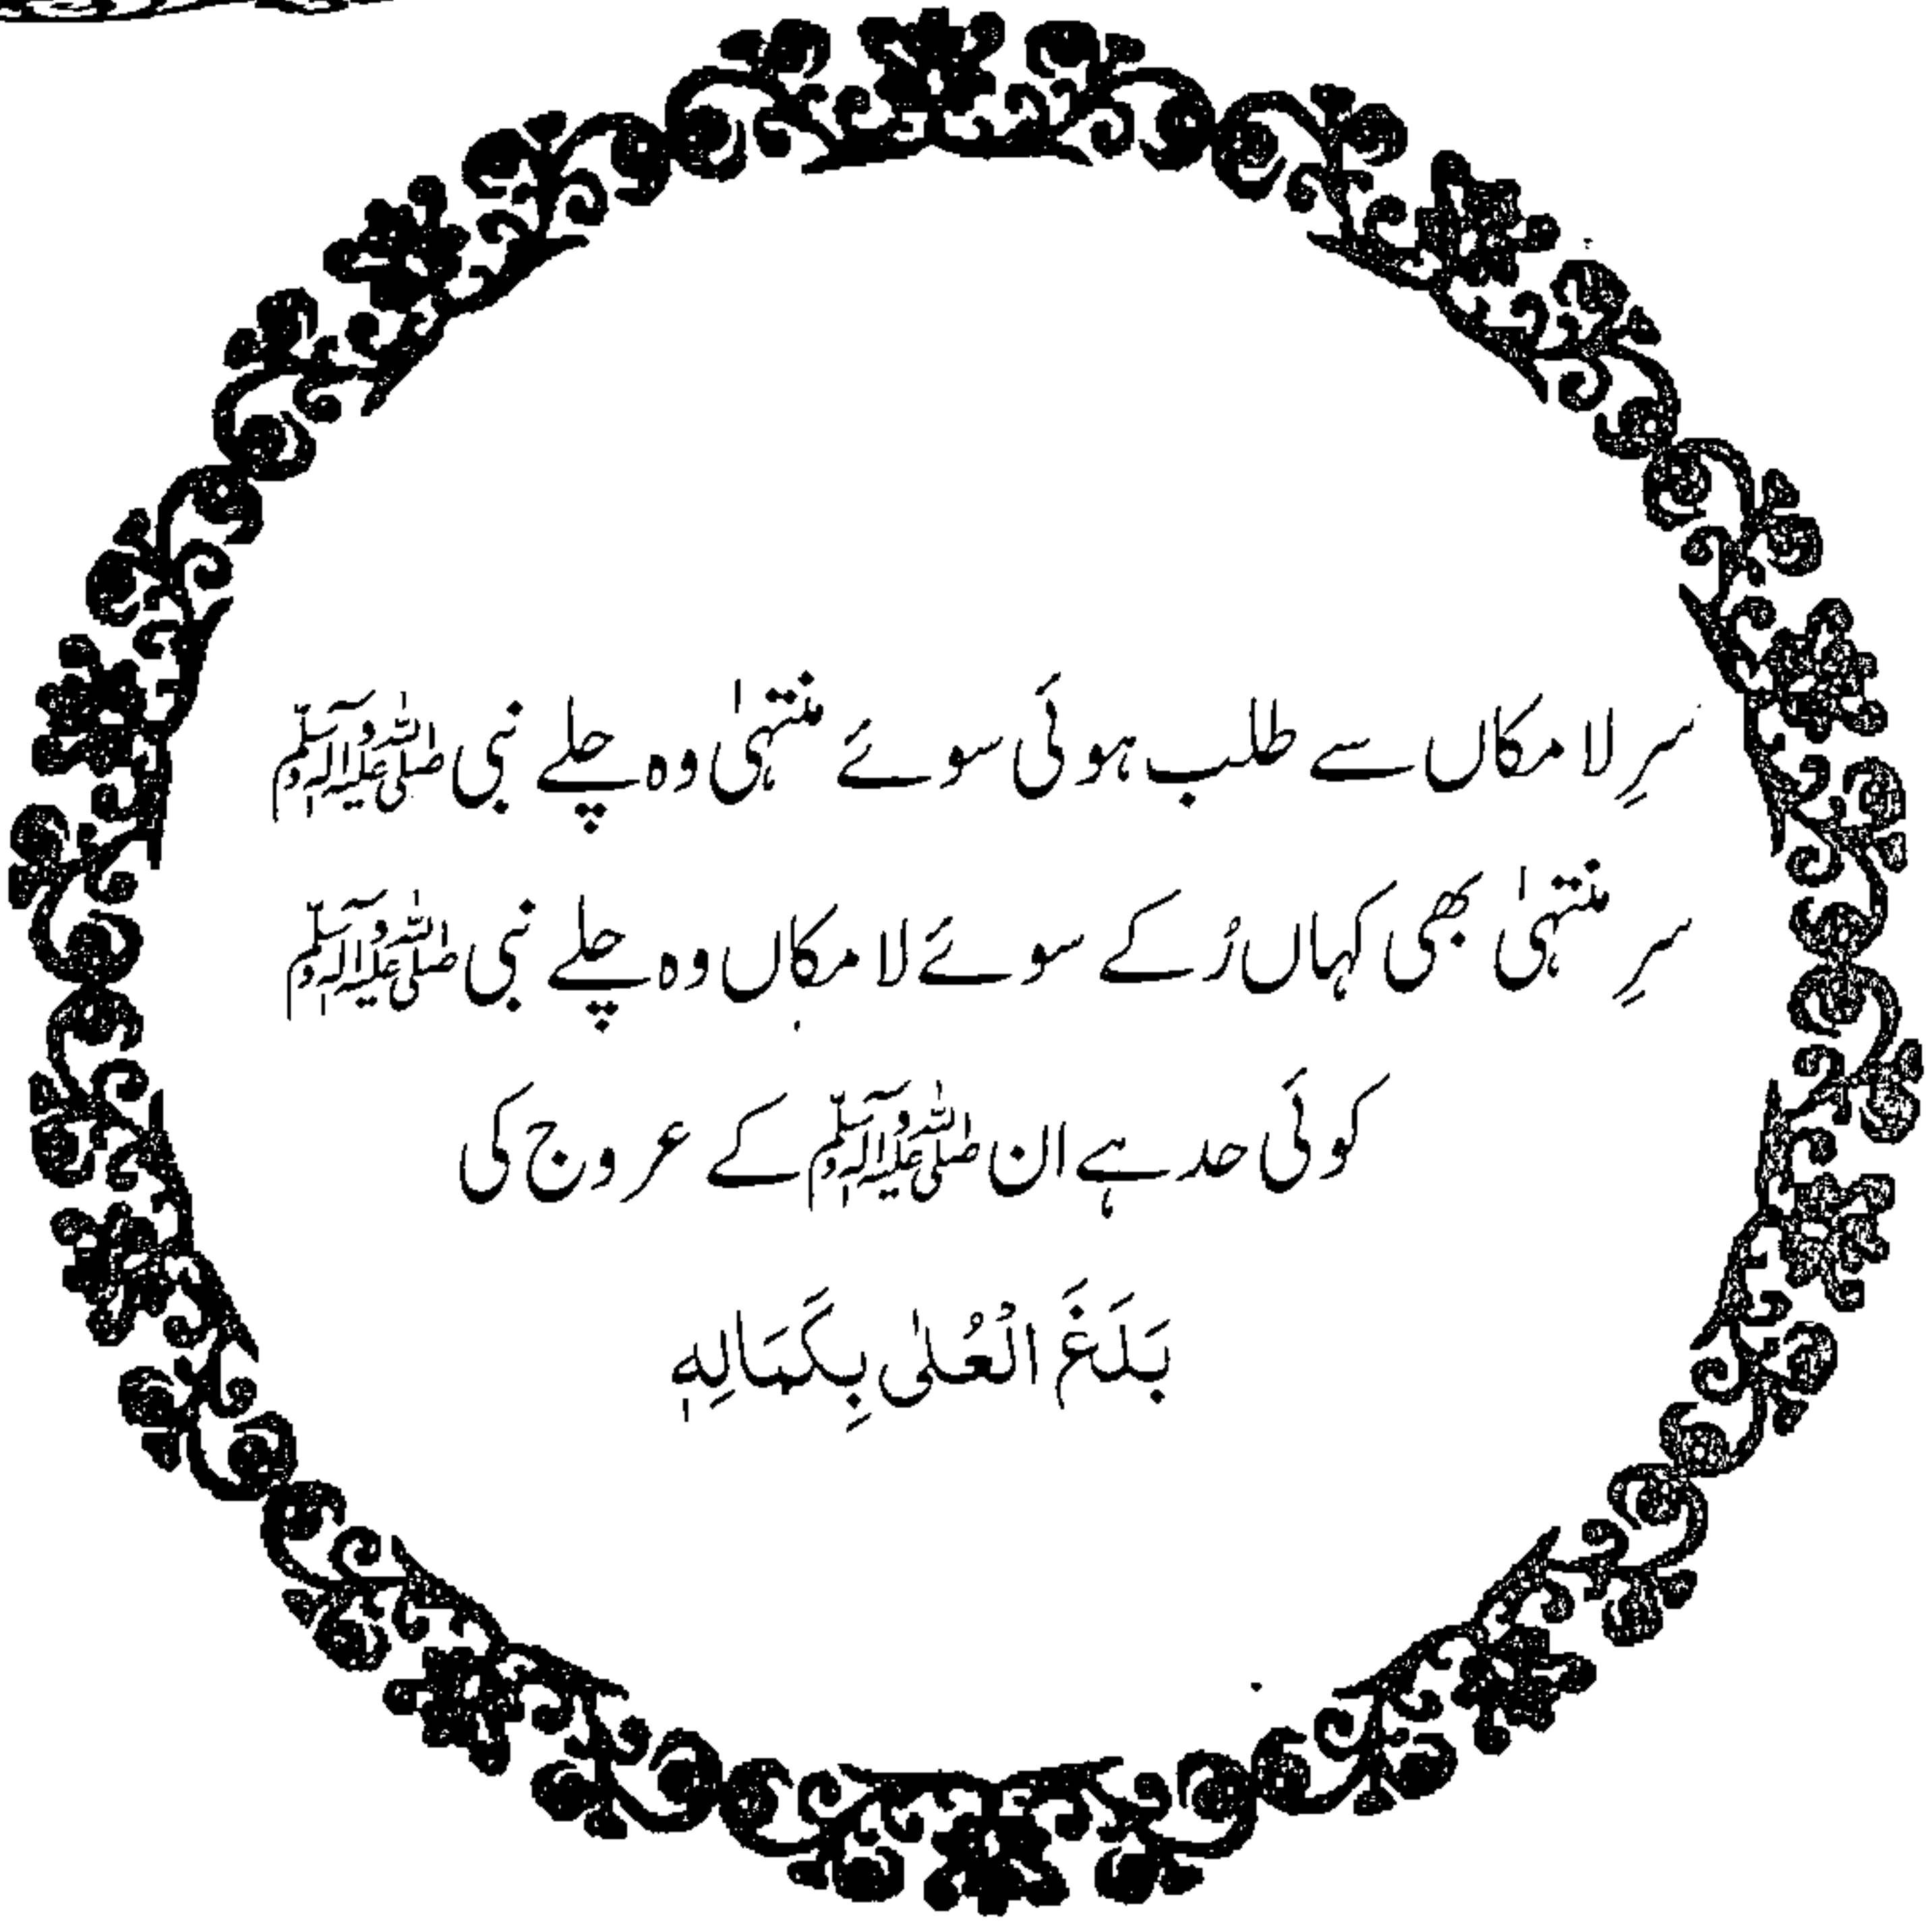 سرِ لا مکاں سے طلب ہوئی سوئے منتہیٰ وہ چلے نبی ﷺ
سرِ منتہیٰ بھی کہاں رُکے سوئے لا مکاں وہ چلے نبی ﷺ
کوئی حد ہے ان ﷺ کے عروج کی
بَلَغَ الْعُلٰی بِکَمَالِہٖ